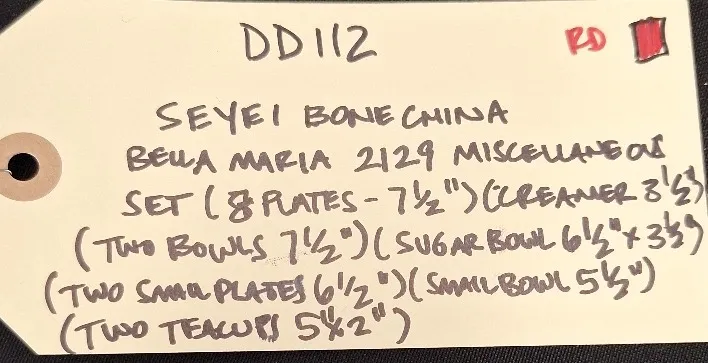 DD112 RD
SEYEI BONE CHINA
BELLA MARIA 2129 MISCELLANEOUS
SET (8 PLATES - 7 1/2") (CREAMER 3 1/2")
(TWO BOWLS 7 1/2") (SUGAR BOWL 6 1/2" X 3 1/2")
(TWO SMALL PLATES 6 1/2") (SMALL BOWL 5 1/2")
(TWO TEACUPS 5" X 2")